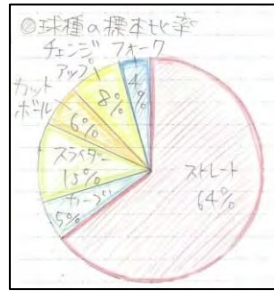 ◎球種の標本比率
チェンジ フォーク
アップ 4%
カット 8%
ボール 6%
スライダー
13%
カーブ
5%
ストレート
64%